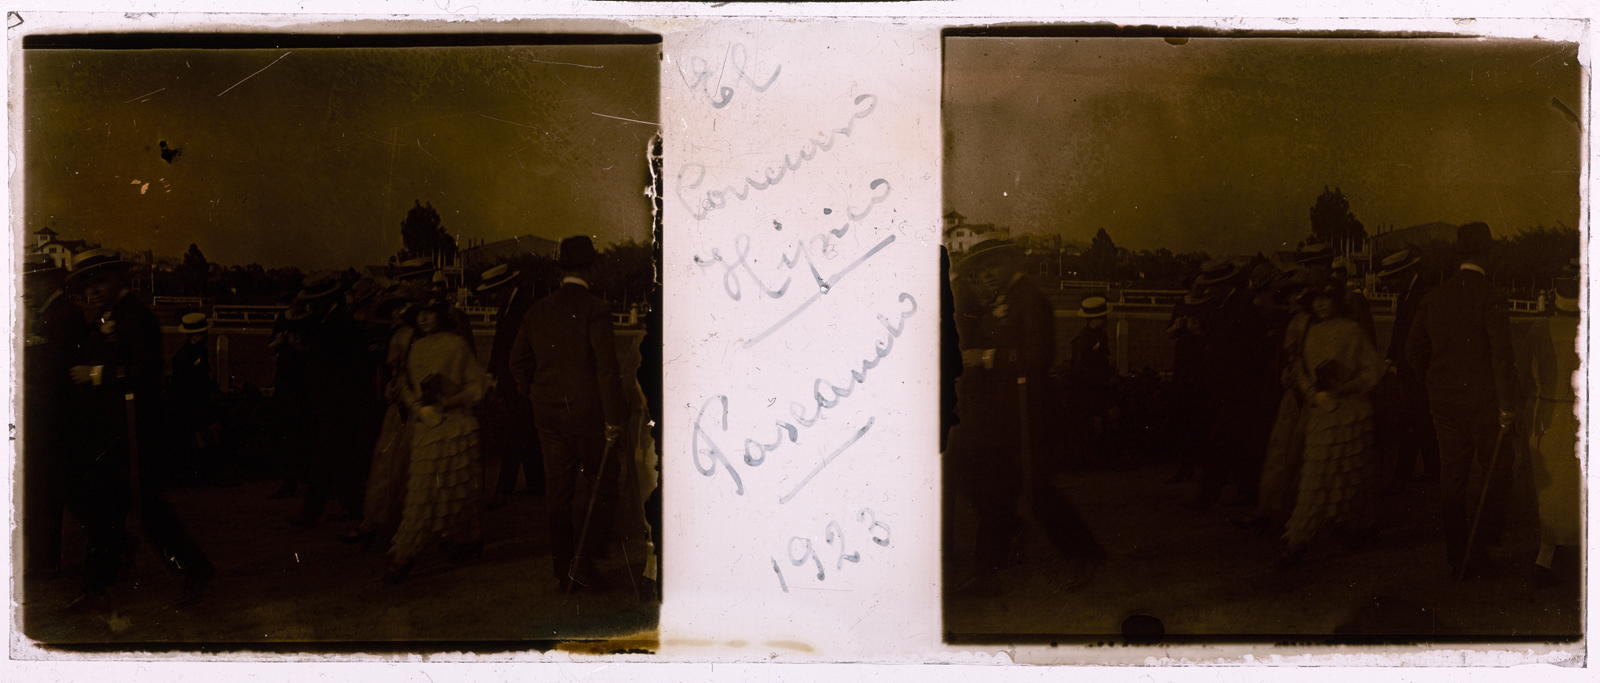 El
Concurso
Hípico
Paseando
1923